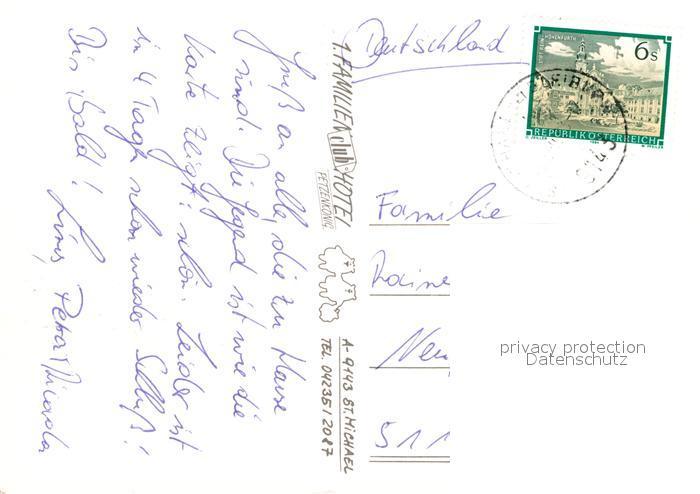 Gruß an alle, die zu Hause
sind. Die Gegend ist wie die
Karte zeigt: schön. Leider ist
in 4 Tagen schon wieder Schluß!
Bis Bald! Petra + Nicola
1. FAMILIEN club HOTEL
PETZENKÖNIG
A-9143 ST. MICHAEL
TEL. 04235/2087
Deutschland
STIFT REIN-HOHENFURTH
6s
REPUBLIK ÖSTERREICH
Familie
Raine
Neu
511
privacy protection
Datenschutz